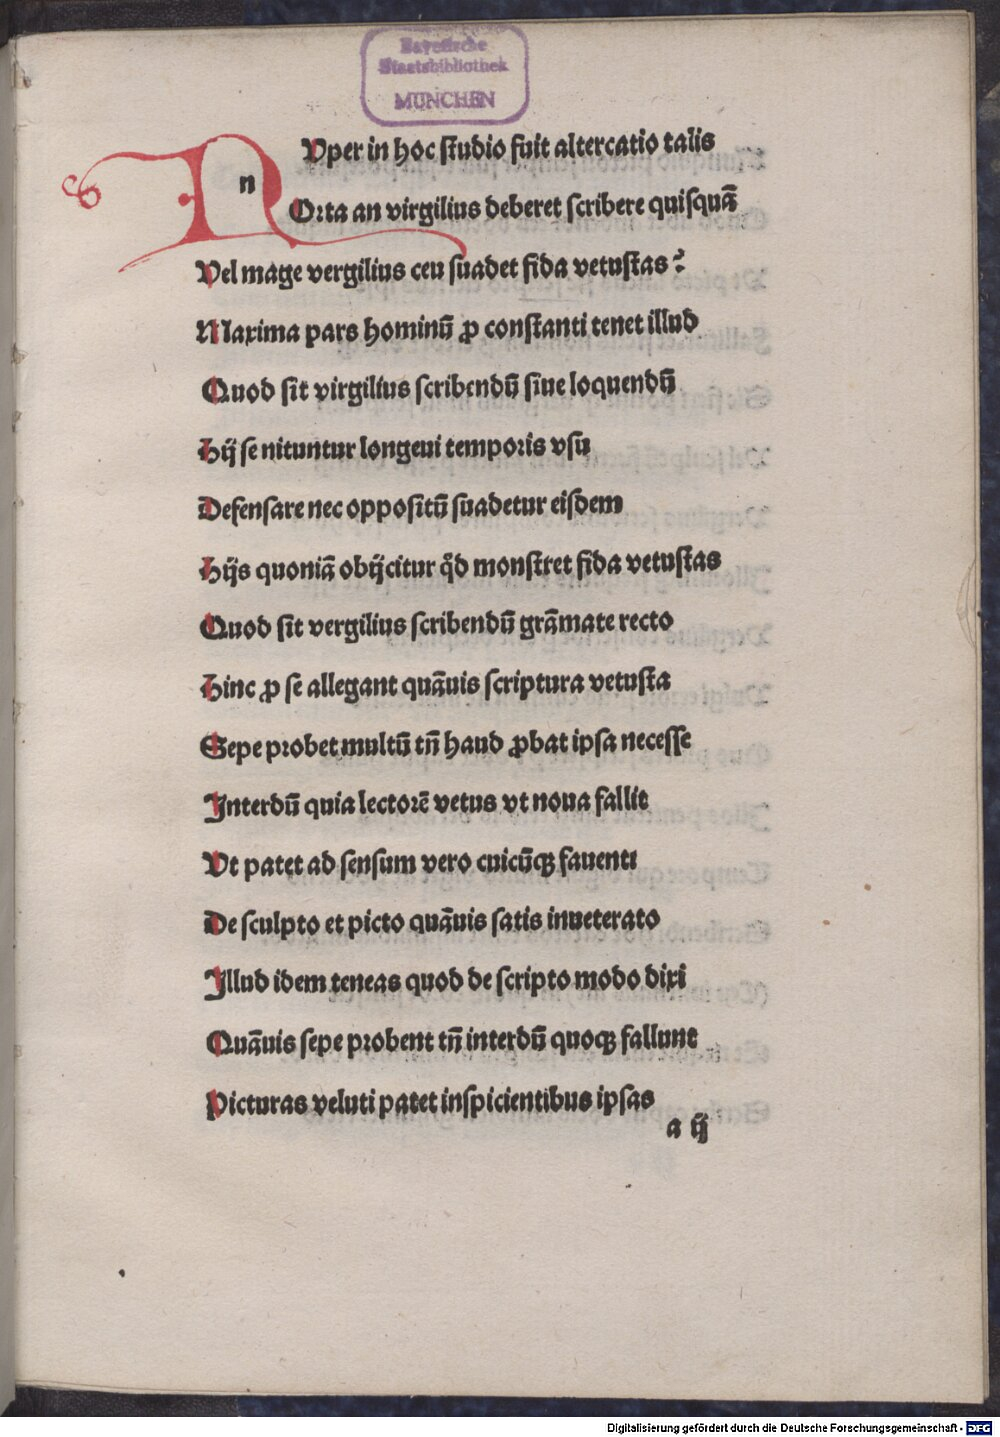 Bayerische
Staatsbibliothek
MÜNCHEN
n
Uper in hoc ſtudio fuit altercatio talis
Orta an virgilius deberet ſcribere quiſquā
Vel mage vergilius ceu ſuadet fida vetuſtas?
Maxima pars hominū ꝓ conſtanti tenet illud
Quod ſit virgilius ſcribendū ſiue loquendū
Hij ſe nituntur longeui temporis vſu
Defenſare nec oppoſitū ſuadetur eiſdem
Hijs quoniā obijcitur qd̄ monſtret fida vetuſtas
Quod ſit vergilius ſcribendū grāmate recto
Hinc ꝓ ſe allegant quāuis ſcriptura vetuſta
Sepe probet multū tn̄ haud ꝓbat ipſa neceſſe
Interdū quia lectorē vetus vt noua fallit
Vt patet ad ſenſum vero cuicūqꝫ fauenti
De ſculpto et picto quāuis ſatis inueterato
Illud idem teneas quod de ſcripto modo dixi
Quāuis ſepe probent tn̄ interdū quoqꝫ fallunt
Picturas veluti patet inſpicientibus ipſas
a ij
Digitalisierung gefördert durch die Deutsche Forschungsgemeinschaft - DFG